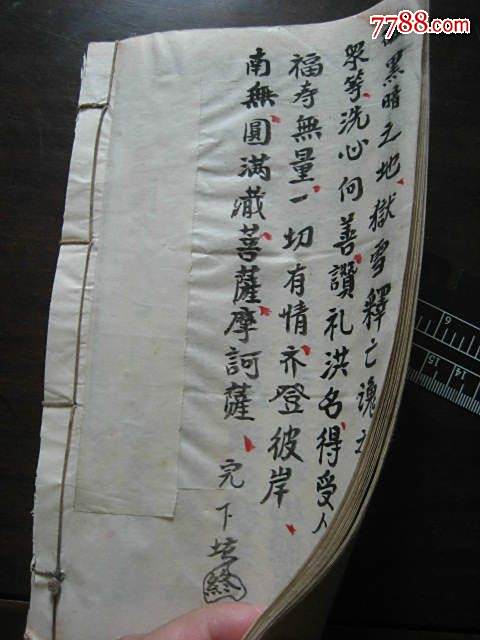 7788.com
黑暗之地獄雪釋亡魂
眾等洗心向善讚礼洪名得受人
福寿無量一切有情齐登彼岸
南無圓滿藏菩薩摩訶薩
完下坛
終